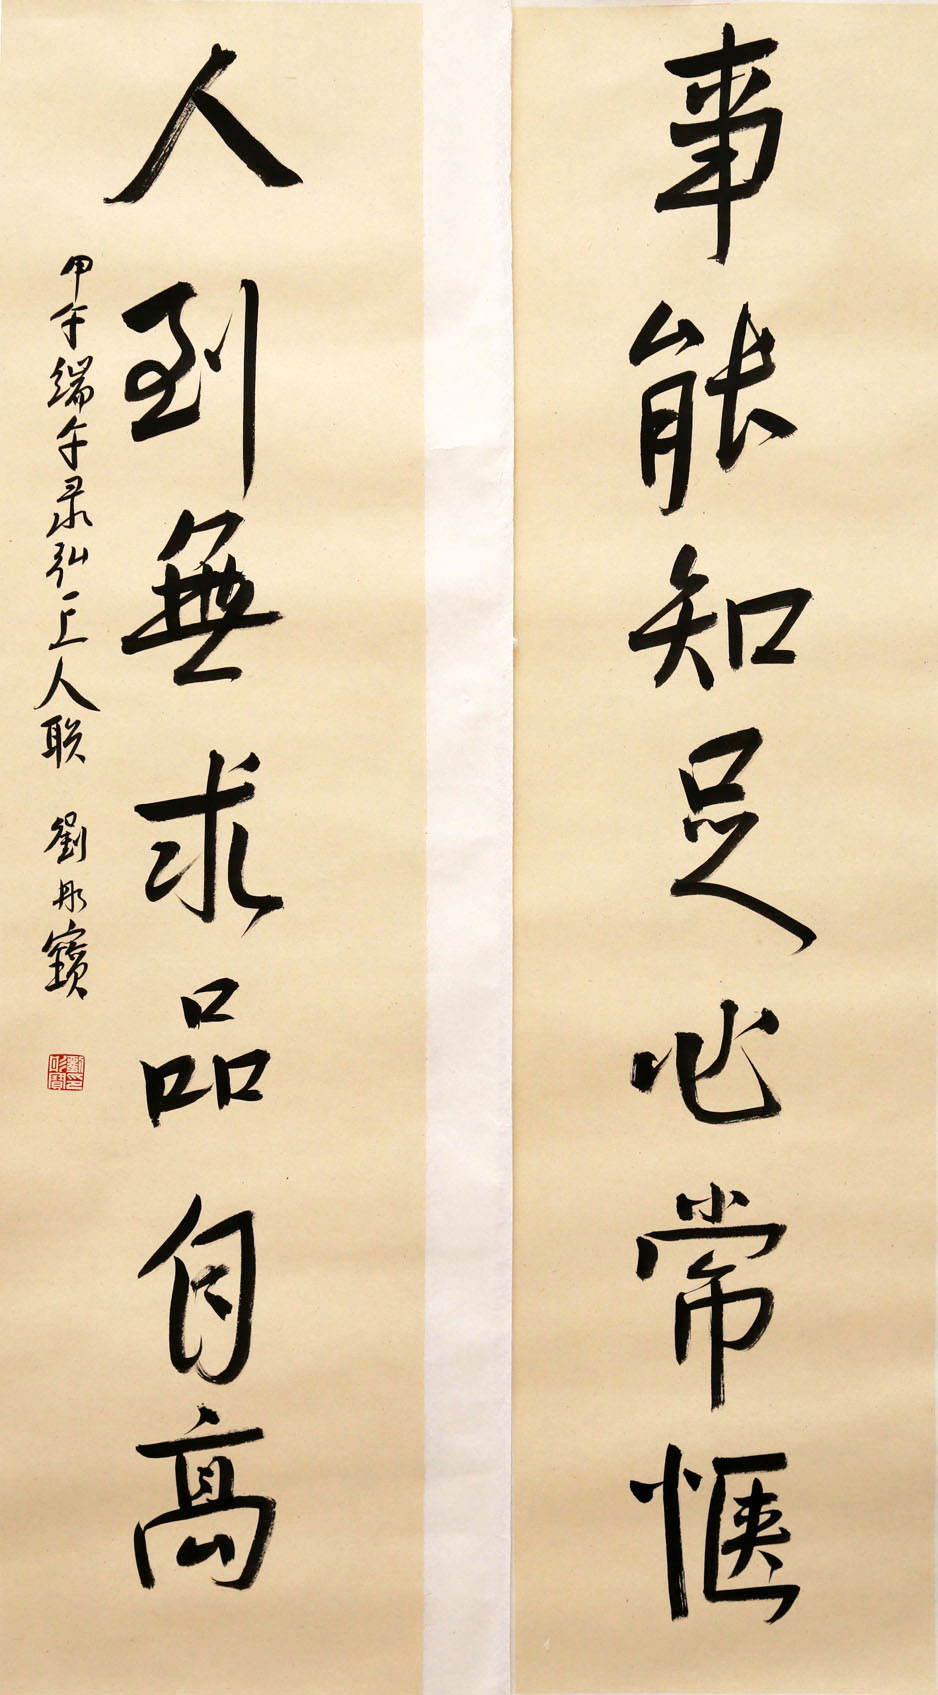 事能知足心常惬
人到無求品自高
甲午端午录弘一上人联 劉彤寶